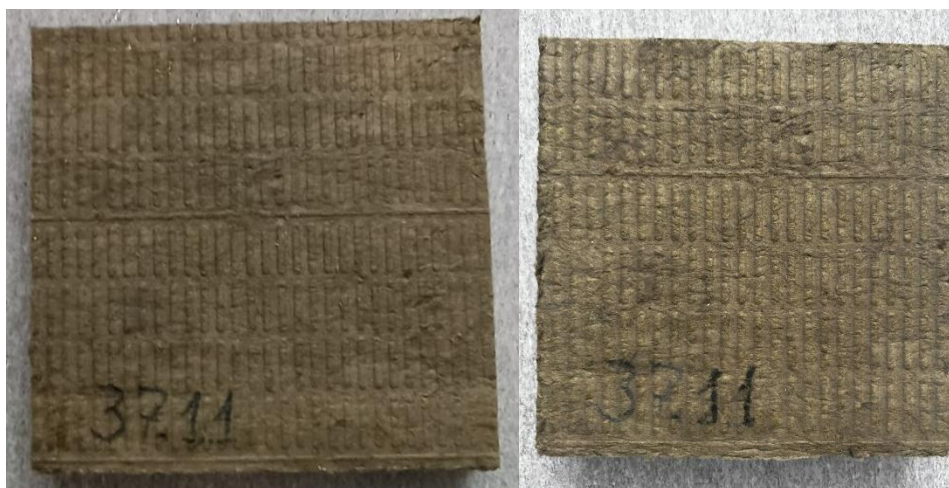 37.1.1
37.1.1